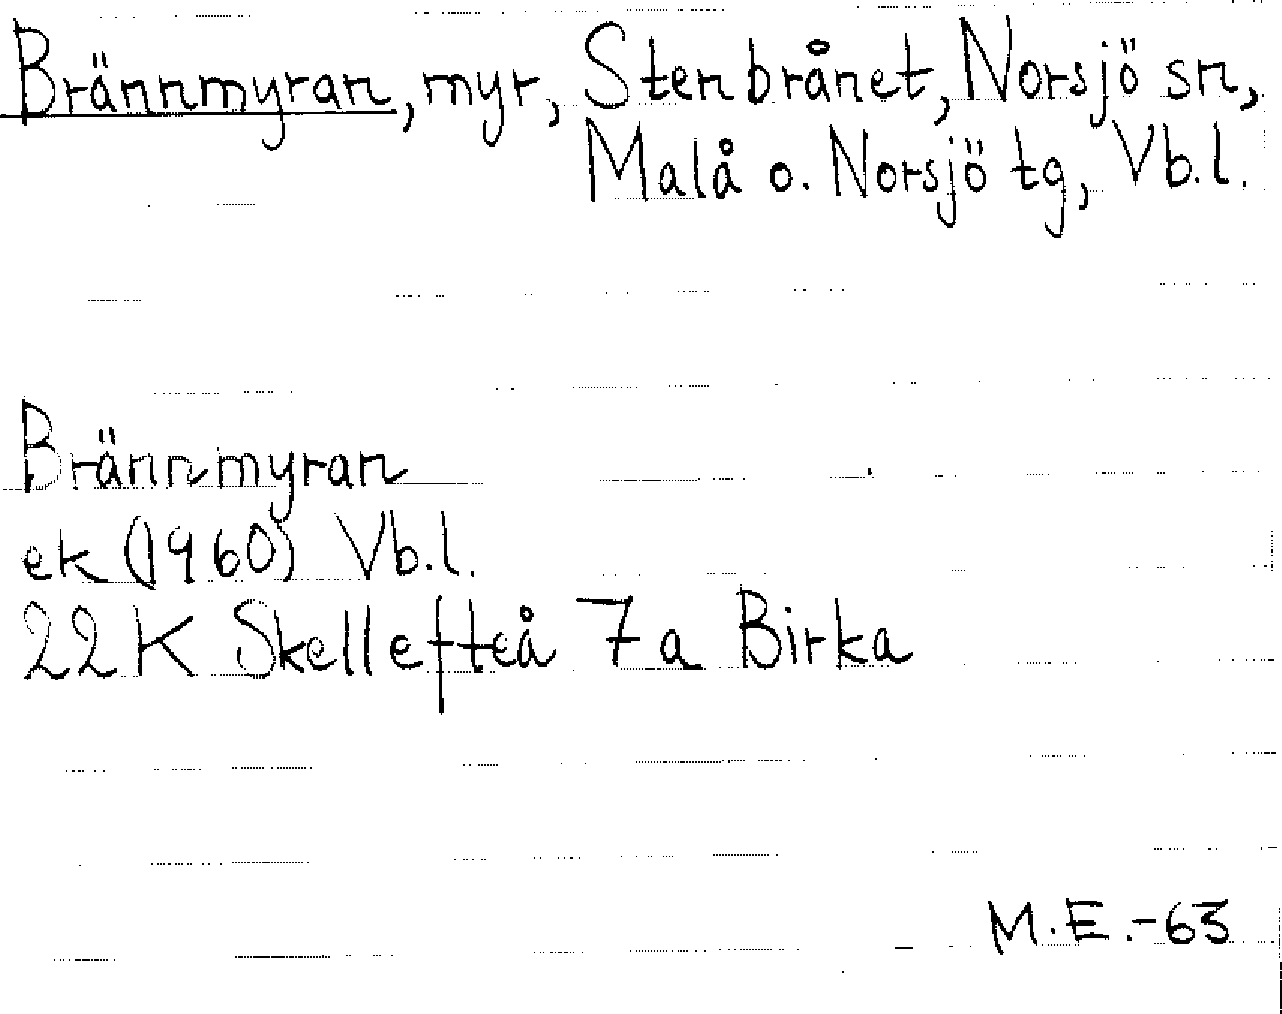 Brännmyran, myr, Stenbrånet, Norsjö sn,
Malå o. Norsjö tg, Vb.l.
Brännmyran
ek (1960) Vb.l.
22K Skellefteå 7a Birka
M.E.-63